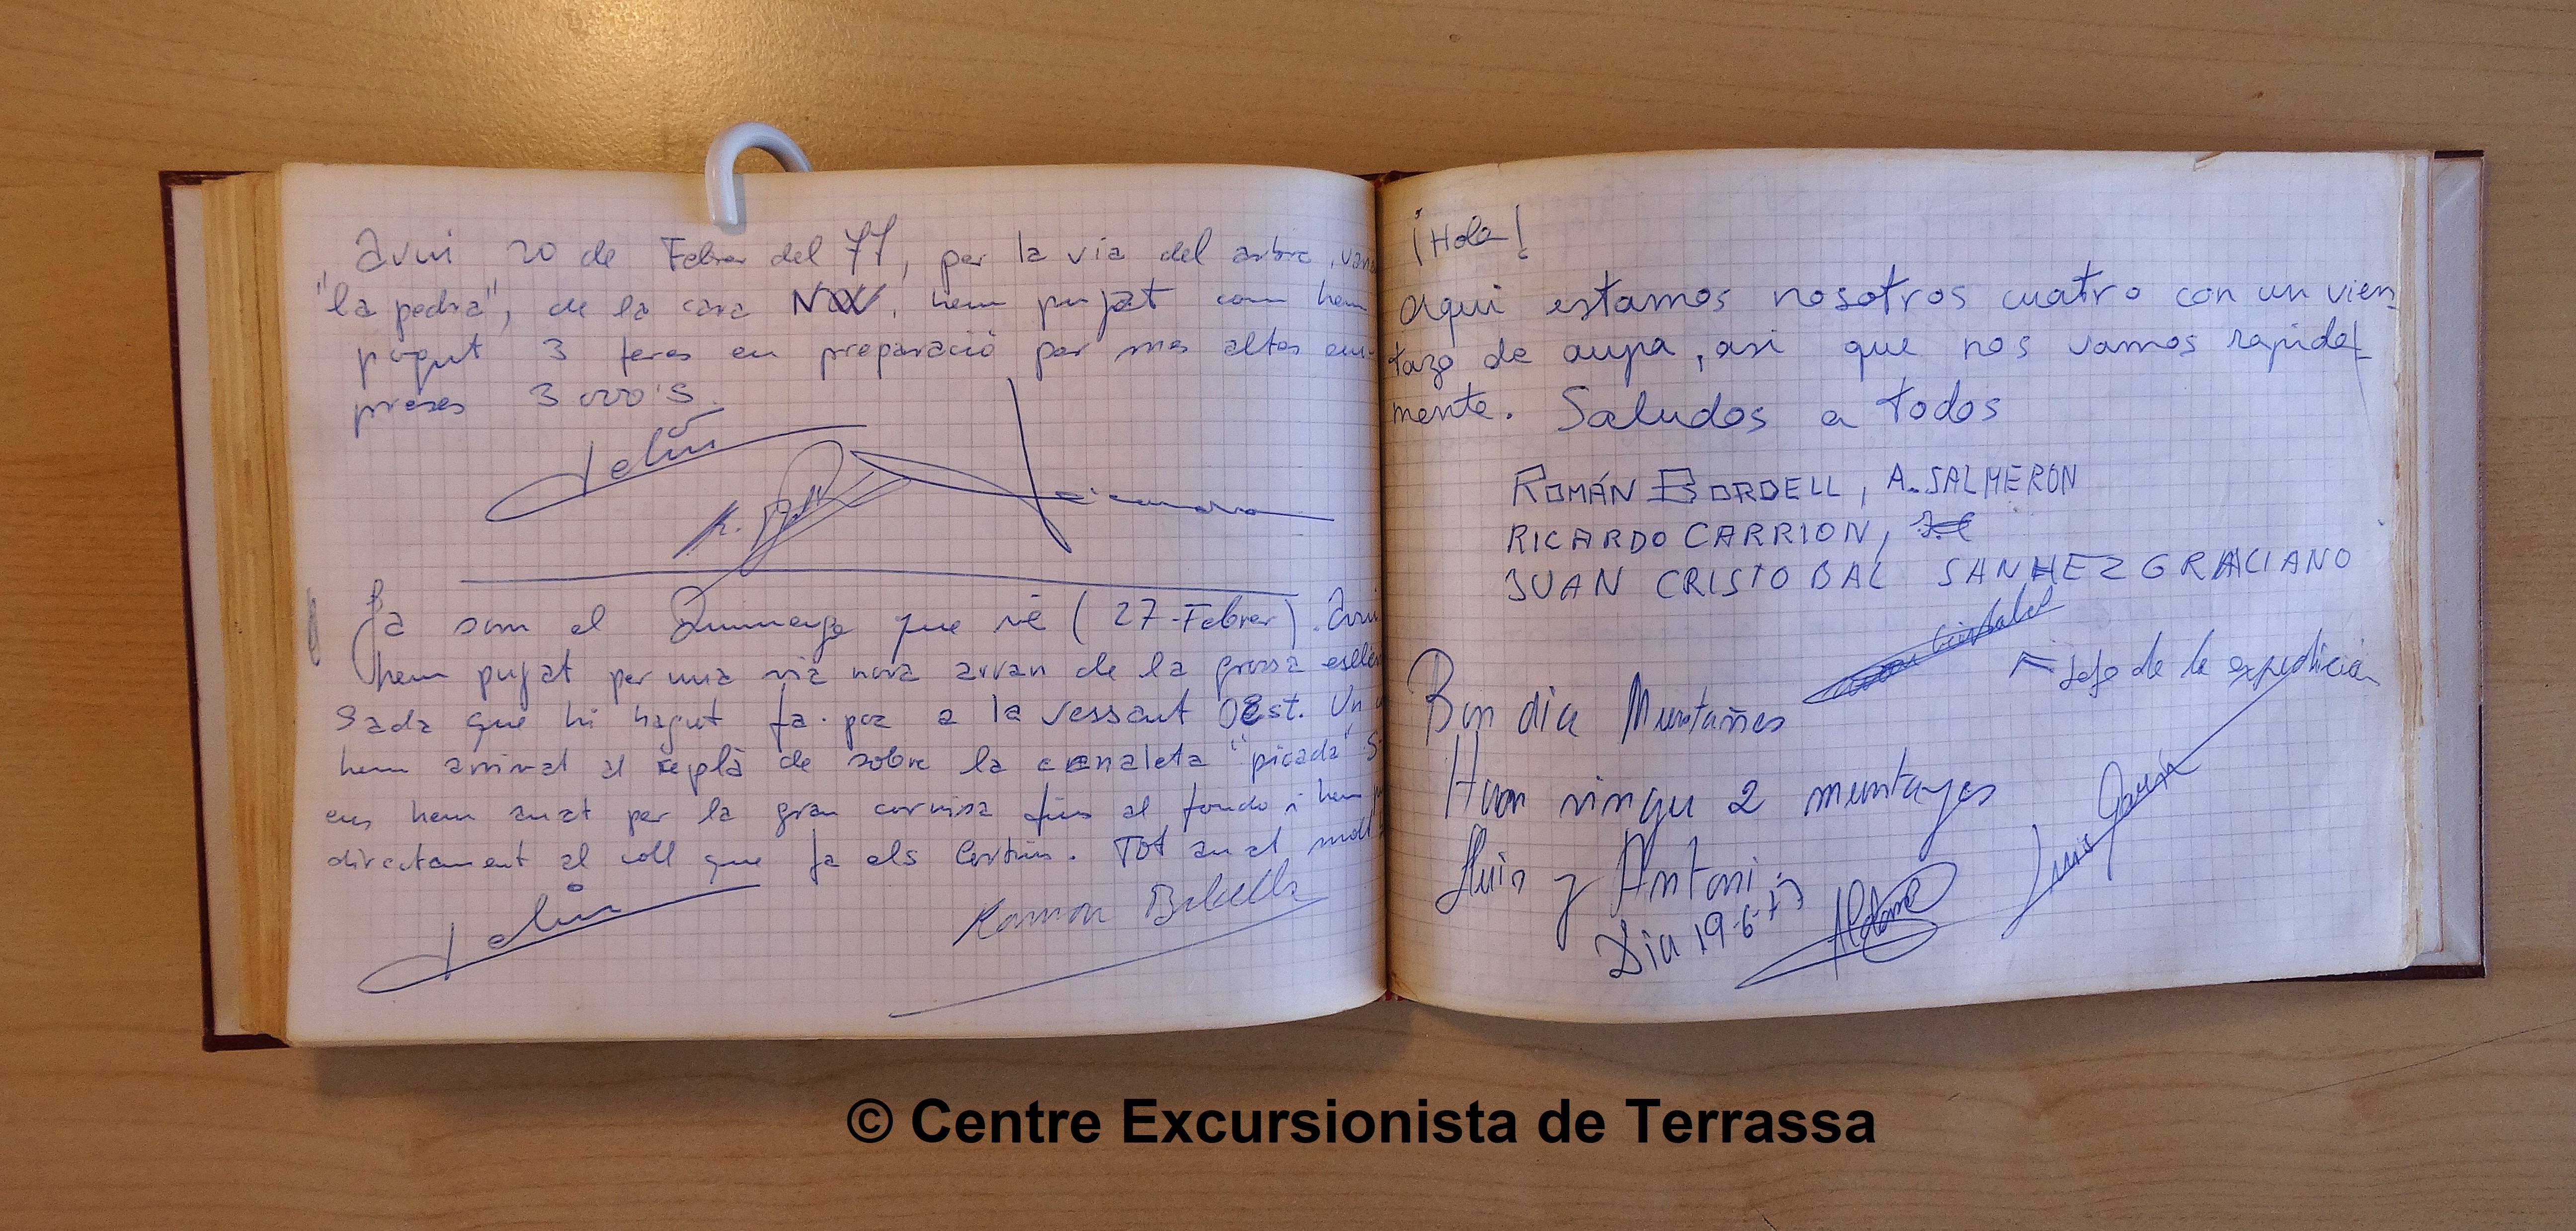 Avui 20 de Febrer del 77, per la via del arbre,
"la pedra", de la cara NW, hem pujat com hem
pogut 3 feres en preparació per mes altes em-
preses 3000's.
Ja som el Diumenge que vé (27-Febrer). Avui
hem pujat per una via nova arran de la grossa esllevi
sada que hi hagut fa poc a la vessant Oest. Un
hem arrivat al replà de sobre la canaleta "picada"
ens hem anat per la gran cornisa fins al fondo i hem
directament al coll que fa els Cortins. Tot anat molt
Ramon
¡Hola!
Aqui estamos nosotros cuatro con un vien-
tazo de aupa, asi que nos vamos rapida-
mente. Saludos a todos
ROMÁN BORDELL, A. SALMERON
RICARDO CARRION,
JUAN CRISTOBAL SANHEZ GRACIANO
Cristobal
Jefe de la expedición
Bon dia Muntañes
Han vingu 2 muntayes
Lluis y Antoni
Dia 19-6-77
Aldama
Luis García
© Centre Excursionista de Terrassa